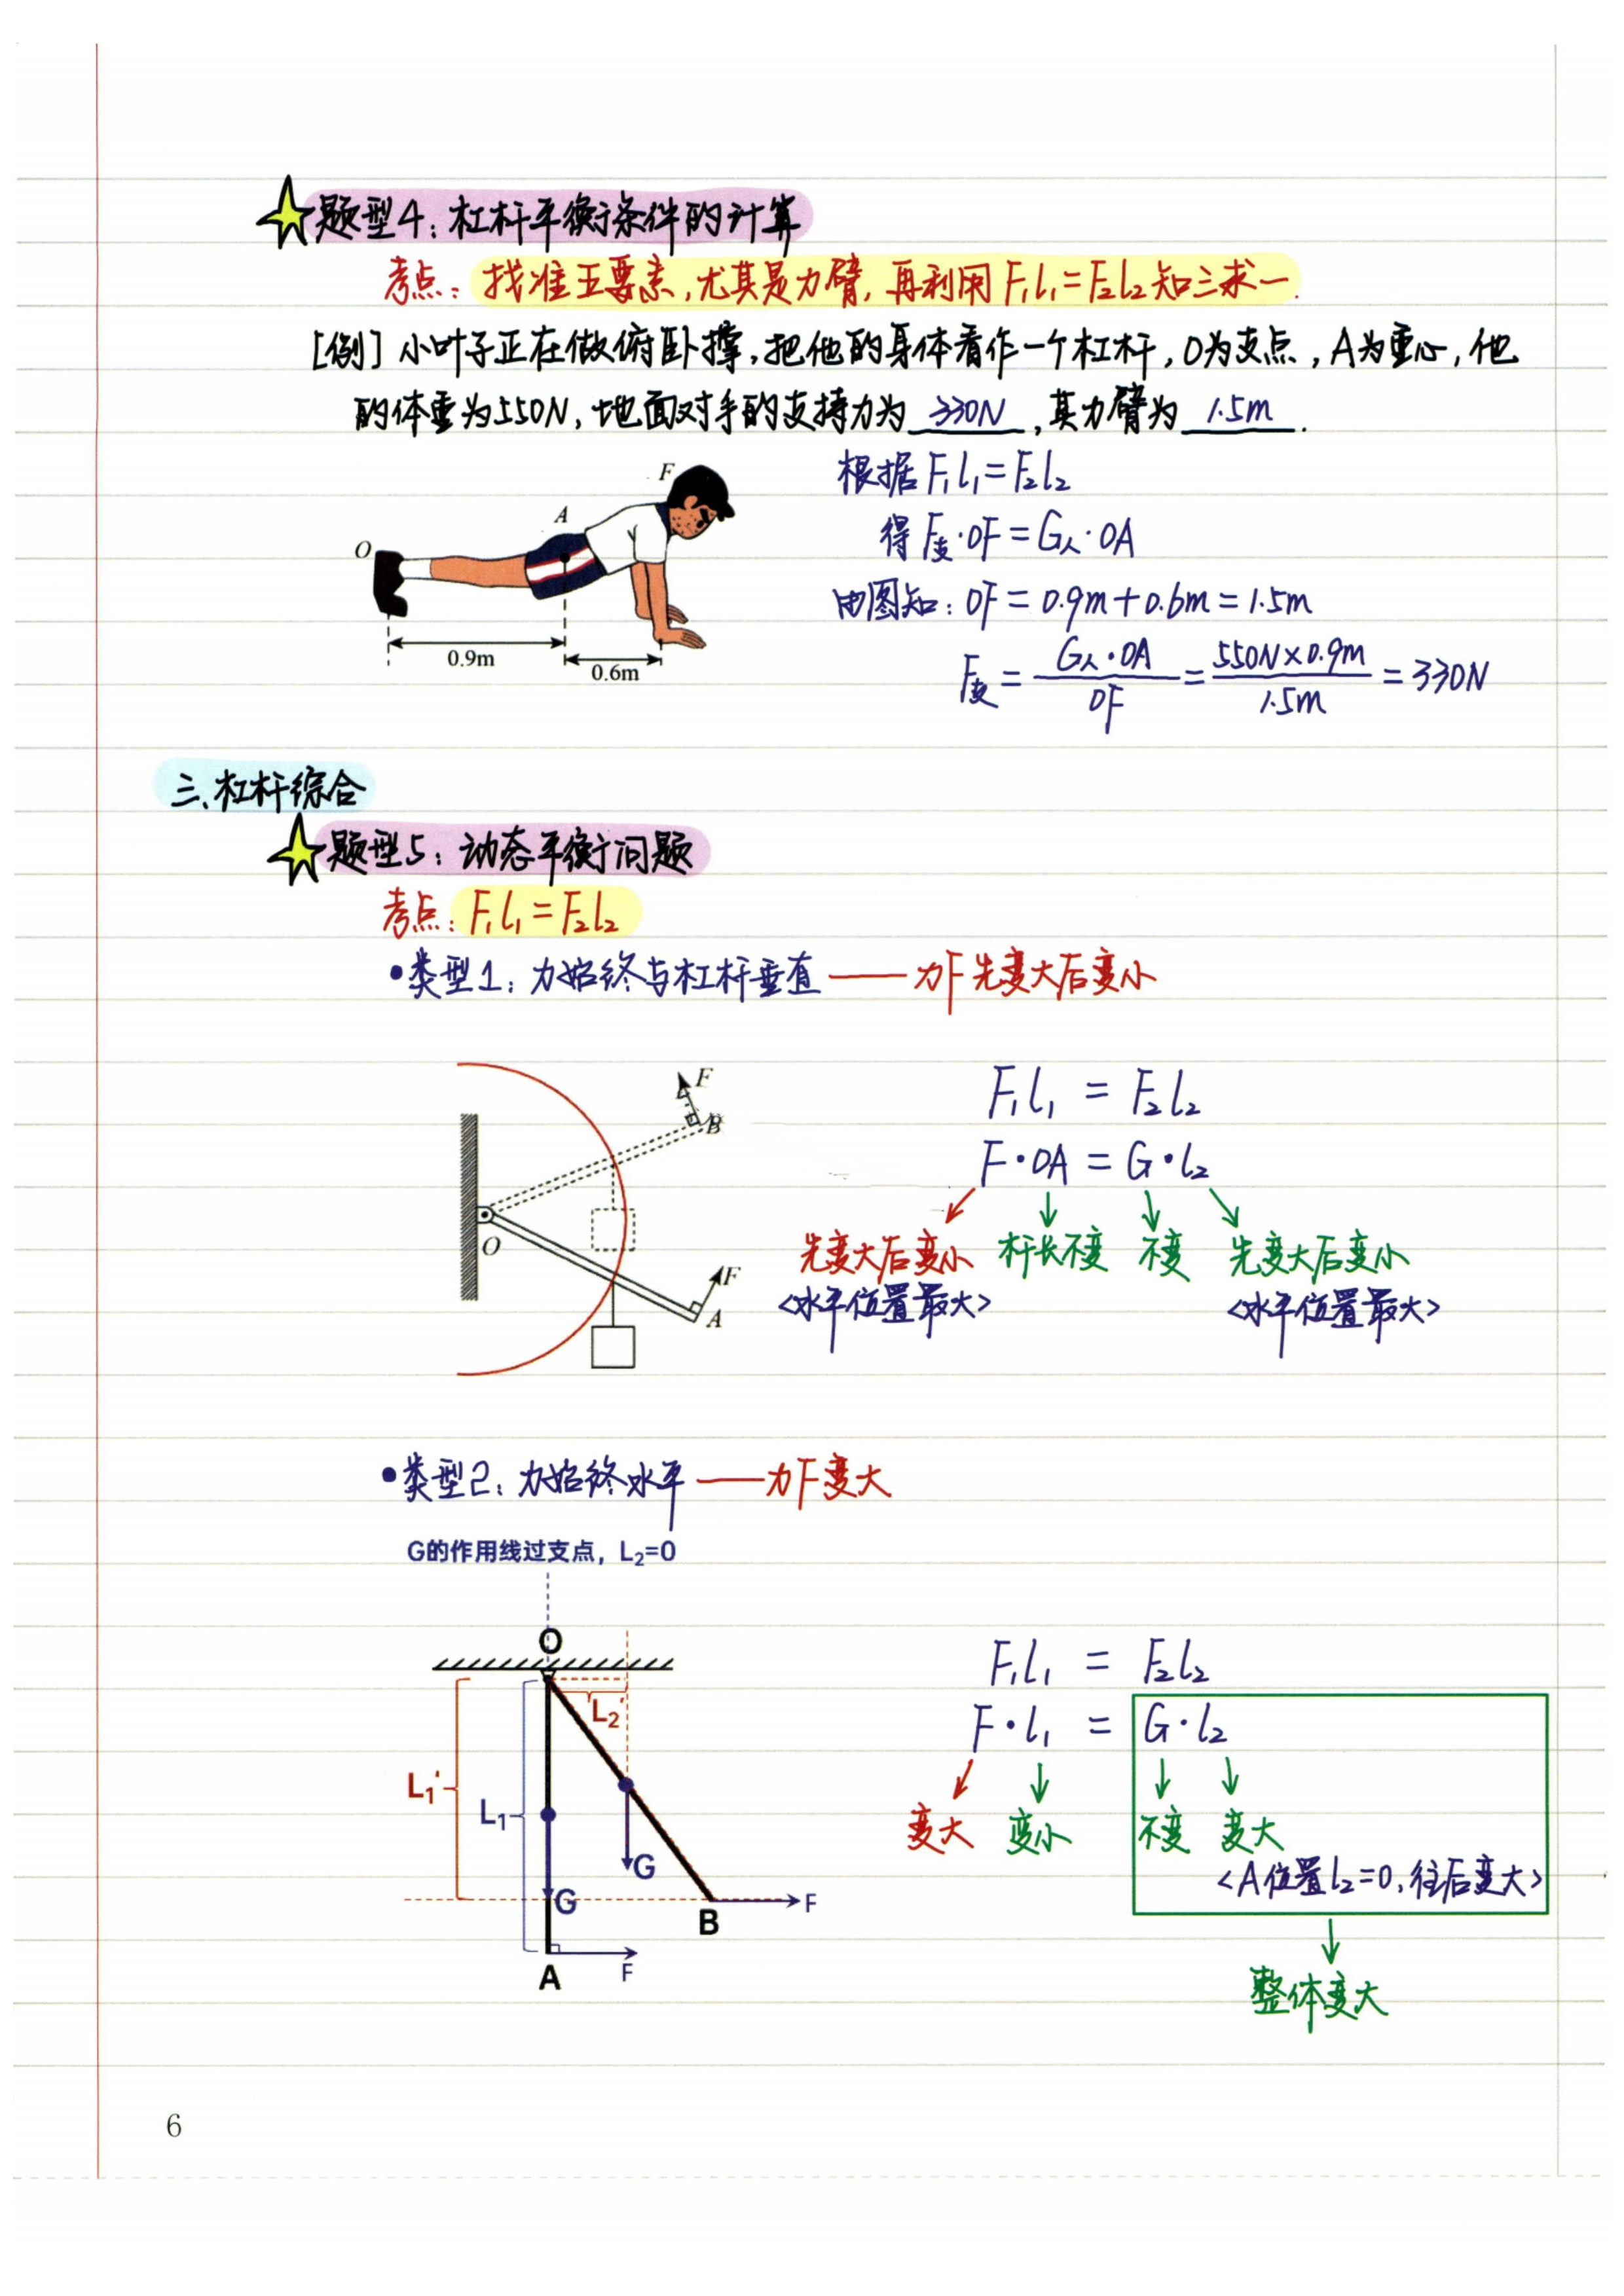 题型4：杠杆平衡条件的计算
考点：找准五要素，尤其是力臂，再利用F₁l₁=F₂l₂知三求一.
[例] 小叶子正在做俯卧撑，把他的身体看作一个杠杆，O为支点，A为重心，他
的体重为550N，地面对手的支持力为 330N ，其力臂为 1.5m .
根据F₁l₁=F₂l₂
得F支·OF=G人·OA
由图知：OF=0.9m+0.6m=1.5m
F支= G人·OA/OF = 550N×0.9m/1.5m =330N
F
A
O
0.9m
0.6m
三、杠杆综合
题型5：动态平衡问题
考点：F₁l₁=F₂l₂
•类型1：力始终与杠杆垂直——力F先变大后变小
F
B
O
F
A
F₁l₁ = F₂l₂
F·OA = G·l₂
先变大后变小 杆长不变 不变 先变大后变小
<水平位置最大> <水平位置最大>
•类型2：力始终水平——力F变大
G的作用线过支点，L₂=0
O
L₂'
L₁'
L₁
G
G
B
F
A
F
F₁l₁ = F₂l₂
F·l₁ = G·l₂
变大 变小 不变 变大
<A位置l₂=0，往后变大>
整体变大
6